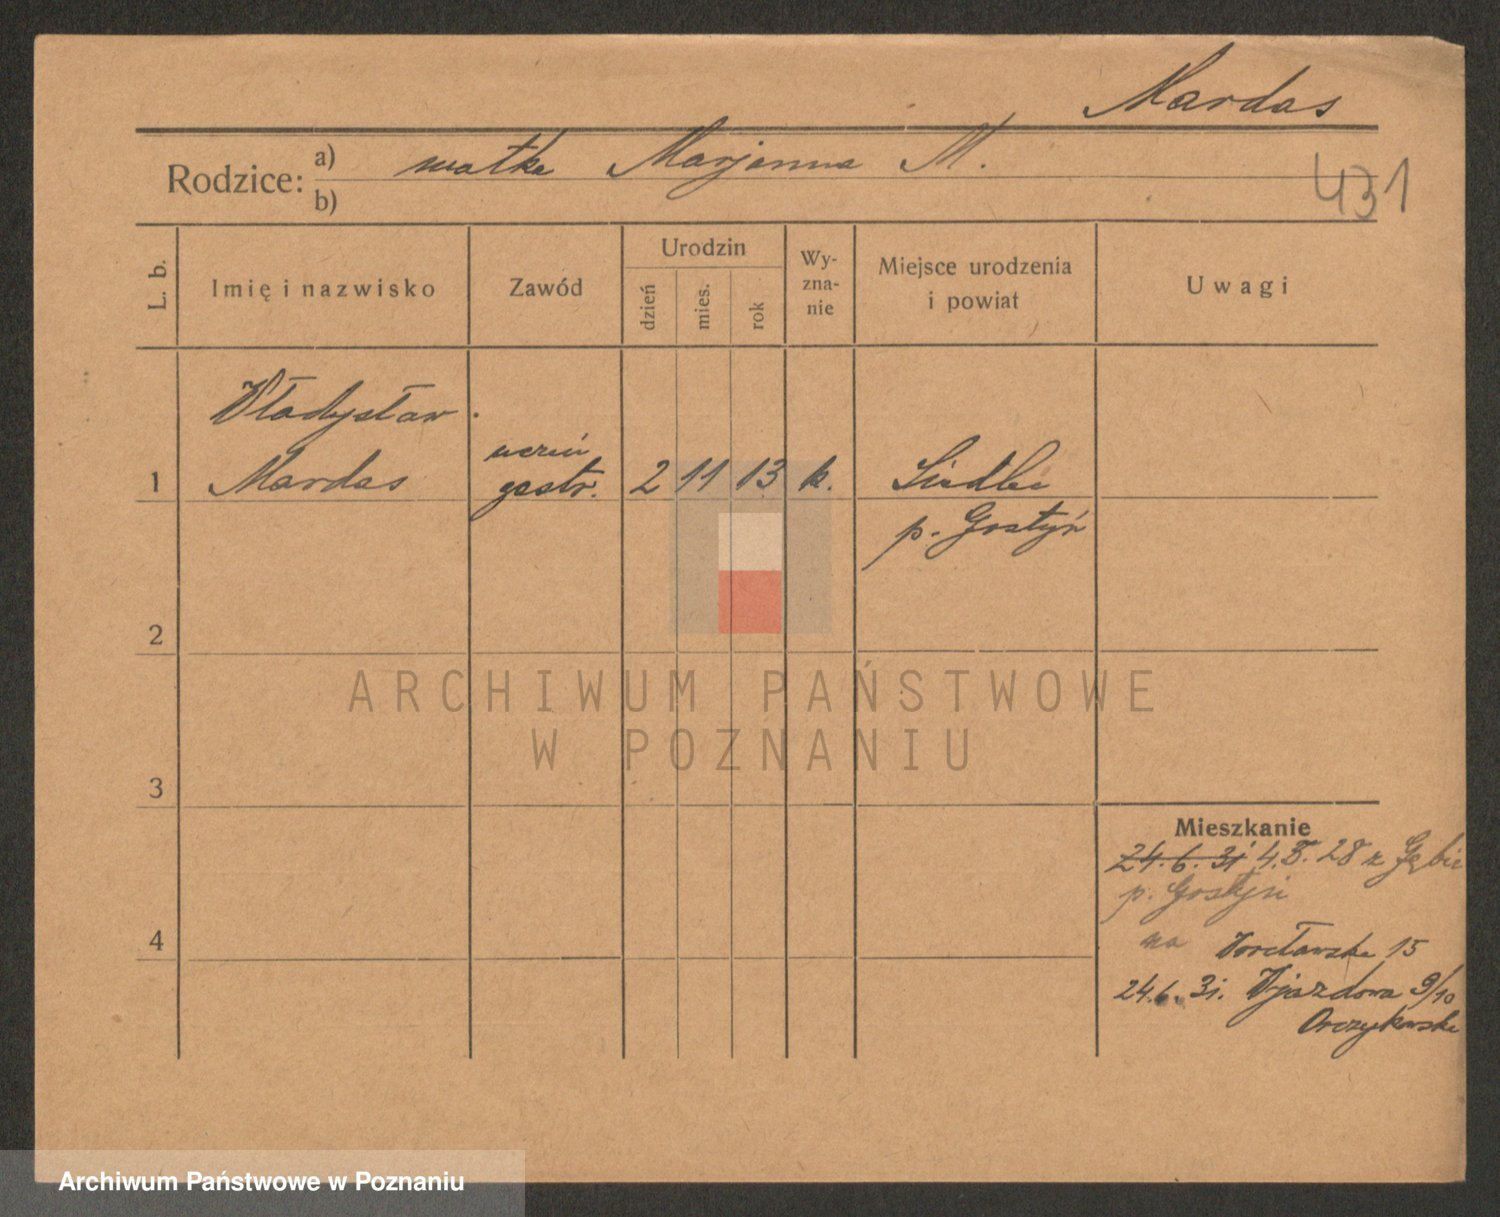 Mardas
Rodzice: a) matka Marjanna M.
b)
431
L. b.
Imię i nazwisko
Zawód
Urodzin
dzień
mies.
rok
Wy-
zna-
nie
Miejsce urodzenia
i powiat
Uwagi
Władysław
1 Mardas
uczeń
gastr.
2 11 13 k.
Siedlec
p. Gostyń
2
3
4
Mieszkanie
24.6.31 4.5.28 z Gębic
p. Gostyń
na Wrocławska 15
24.6.31. Wjazdowa 9/10
ARCHIWUM PAŃSTWOWE
W POZNANIU
Archiwum Państwowe w Poznaniu